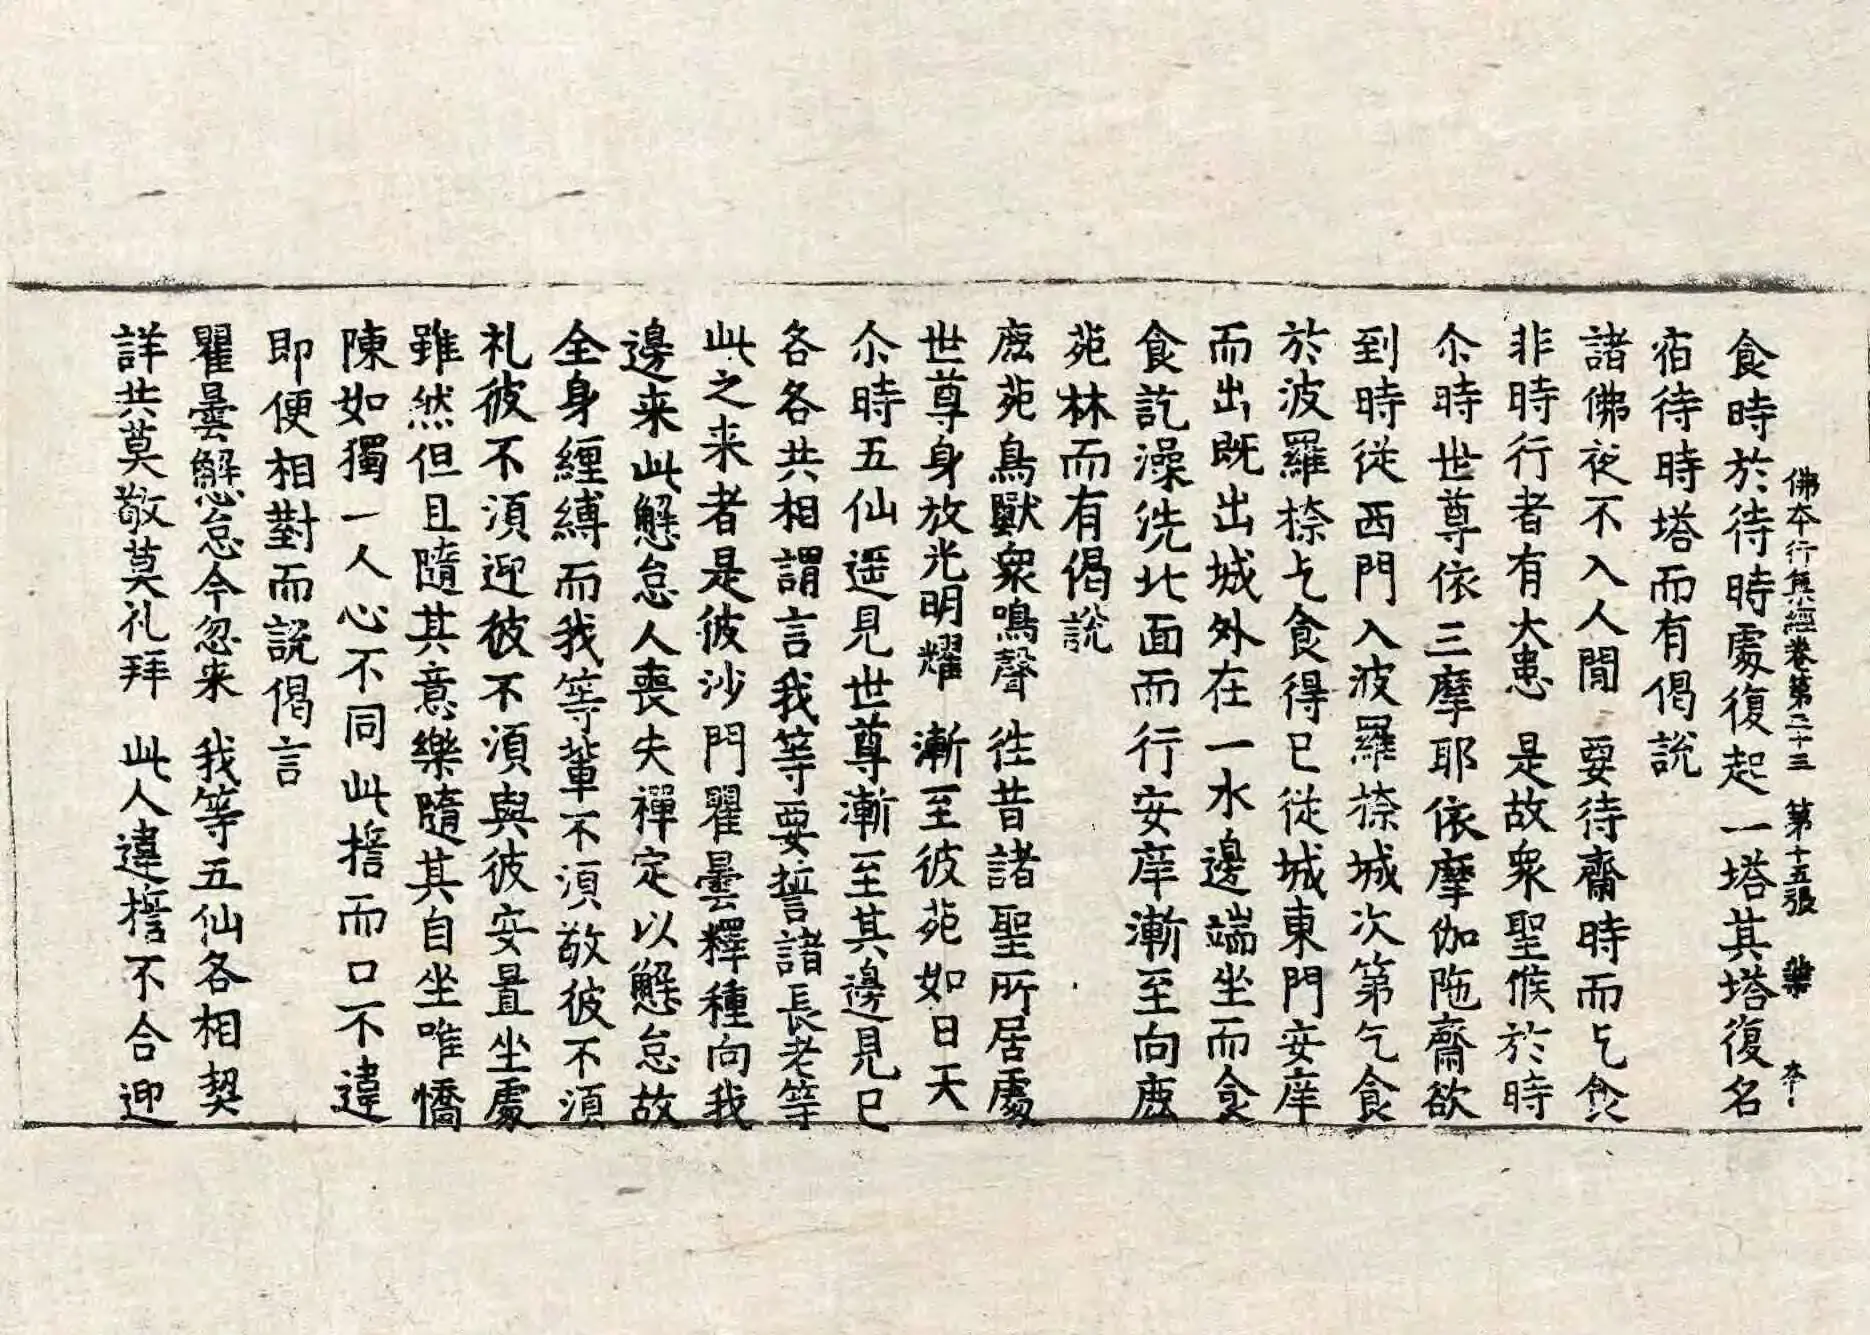 佛本行集經卷第三十三 第十五張
食時於待時處復起一塔其塔復名
宿待時塔而有偈說
諸佛夜不入人間 要待齋時而乞食
非時行者有大患 是故衆聖候於時
尒時世尊依三摩耶依摩伽陁齋欲
到時從西門入波羅㮈城次第乞食
於波羅㮈乞食得已從城東門安庠
而出既出城外在一水邊端坐而食
食訖澡洗北面而行安庠漸至向鹿
苑林而有偈說
鹿苑鳥獸衆鳴聲 往昔諸聖所居處
世尊身放光明耀 漸至彼苑如日天
尒時五仙遥見世尊漸至其邊見已
各各共相謂言我等要誓諸長老等
此之来者是彼沙門瞿曇釋種向我
邊来此懈怠人喪失禪定以懈怠故
全身纏縛而我等輩不須敬彼不須
礼彼不須迎彼不須與彼安置坐處
雖然但且隨其意樂隨其自坐唯憍
陳如獨一人心不同此誓而口不違
即便相對而說偈言
瞿曇懈怠今忽来 我等五仙各相契
詳共莫敬莫礼拜 此人違誓不合迎